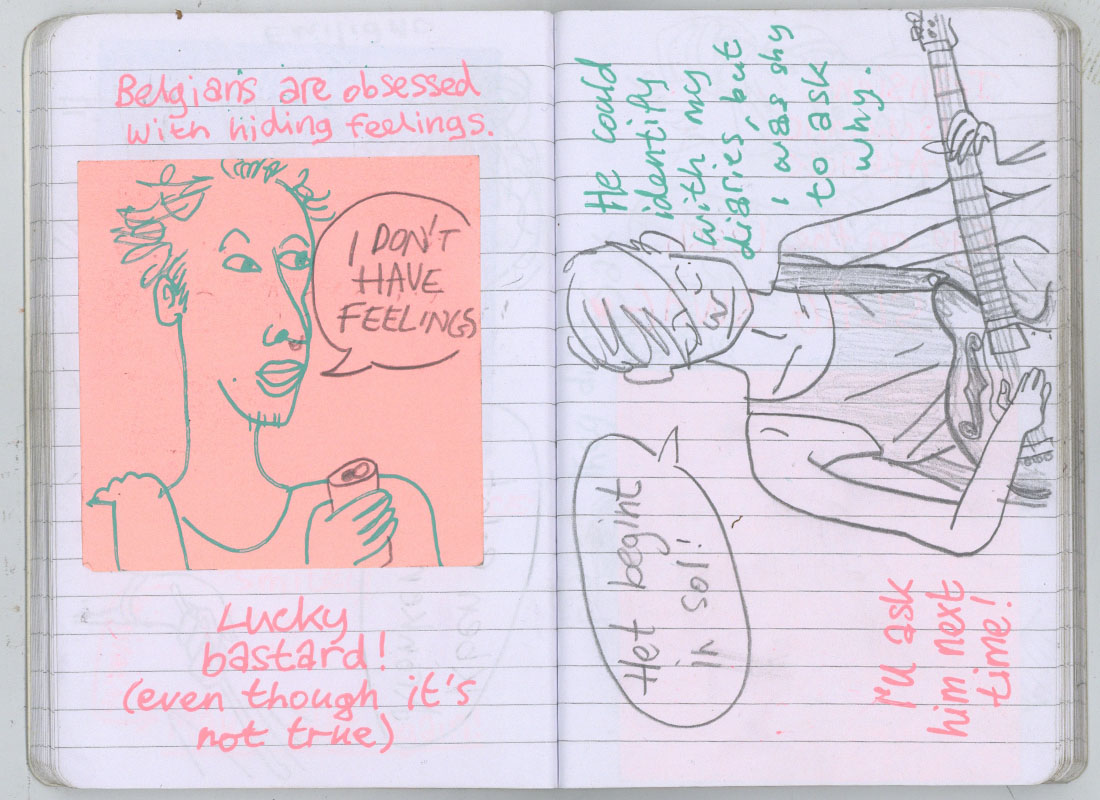 Belgians are obsessed
with hiding feelings.
I DON'T
HAVE
FEELINGS
Lucky
bastard!
(even though it's
not true)
He could
identify
with my
diaries, but
i was shy
to ask
why.
Het begint
in sol!
I'll ask
him next
time!